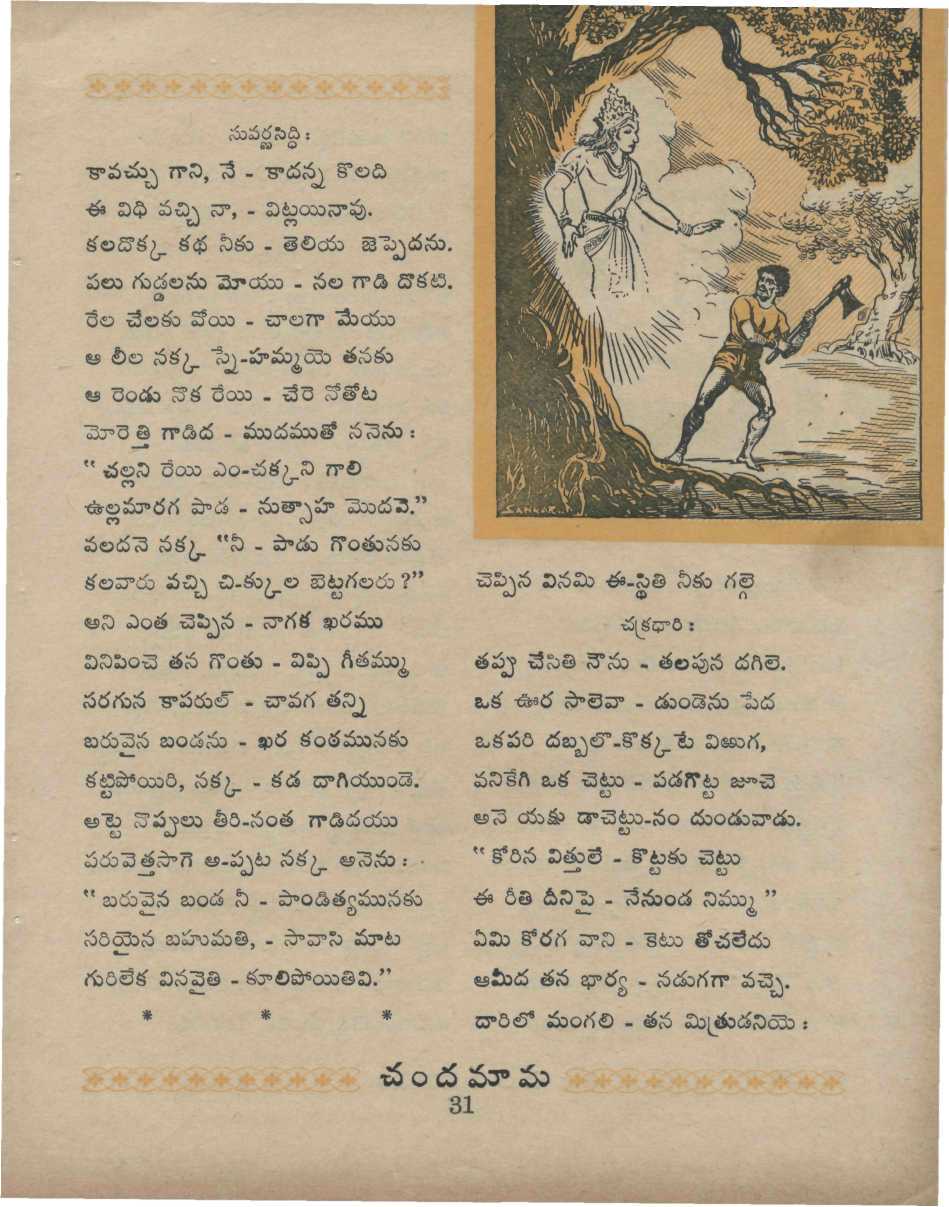 సువర్ణసిద్ధి :
కావచ్చు గాని, నే - కాదన్న కొలది
ఈ విధి వచ్చి నా, - విట్లయినావు.
కలదొక్క కథ నీకు - తెలియ జెప్పెదను.
పలు గుడ్డలను మోయు - నల గాడి దొకటి.
రేల చేలకు వోయి - చాలగా మేయు
ఆ లీల నక్క స్నే-హమ్మయె తనకు
ఆ రెండు నొక రేయి - చేరె నోతోట
మోరెత్తి గాడిద - ముదముతో ననెను :
“ చల్లని రేయి ఎం-చక్కని గాలి
ఉల్లమారగ పాడ - నుత్సాహ మొదవె.”
వలదనె నక్క “నీ - పాడు గొంతునకు
కలవారు వచ్చి చి-క్కుల బెట్టగలరు ?”
అని ఎంత చెప్పిన - నాగక ఖరము
వినిపించె తన గొంతు - విప్పి గీతమ్ము
సరగున కాపరుల్ - చావగ తన్ని
బరువైన బండను - ఖర కంఠమునకు
కట్టిపోయిరి, నక్క - కడ దాగియుండె.
అట్టె నొప్పులు తీరి-నంత గాడిదయు
పరువెత్తసాగె అ-ప్పట నక్క అనెను :
“ బరువైన బండ నీ - పాండిత్యమునకు
సరియైన బహుమతి, - సావాసి మాట
గురిలేక వినవైతి - కూలిపోయితివి.”
* * *
SANKAR
చెప్పిన వినమి ఈ-స్థితి నీకు గల్గె
చక్రధారి :
తప్పు చేసితి నౌను - తలపున దగిలె.
ఒక ఊర సాలెవా - డుండెను పేద
ఒకపరి దబ్బలొ-కొక్కటే విఱుగ,
వనికేగి ఒక చెట్టు - పడగొట్ట జూచె
అనె యక్షు డాచెట్టు-నం దుండువాడు.
“ కోరిన విత్తులే - కొట్టకు చెట్టు
ఈ రీతి దీనిపై - నేనుండ నిమ్ము ”
ఏమి కోరగ వాని - కెటు తోచలేదు
ఆమీద తన భార్య - నడుగగా వచ్చె.
దారిలో మంగలి - తన మిత్రుడనియె :
చందమామ
31